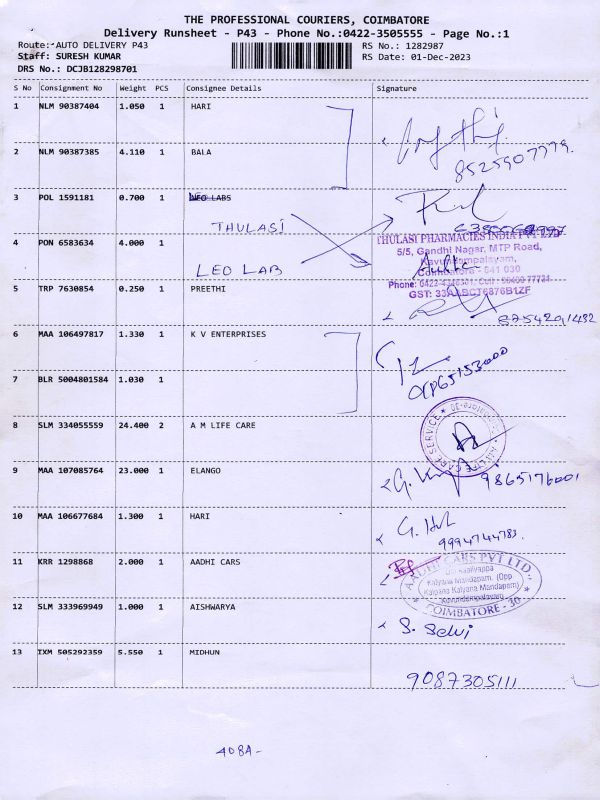 THE PROFESSIONAL COURIERS, COIMBATORE
Delivery Runsheet - P43 - Phone No.:0422-3505555 - Page No.:1
Route: AUTO DELIVERY P43
RS No.: 1282987
Staff: SURESH KUMAR
RS Date: 01-Dec-2023
DRS No.: DCJB128298701
S No Consignment No Weight PCS Consignee Details Signature
1 NLM 90387404 1.050 1 HARI
8525907779.
2 NLM 90387385 4.110 1 BALA
3 POL 1591181 0.700 1 LEO LABS
THULASI
4 PON 6583634 4.000 1
LEO LAB
THULASI PHARMACIES INDIA PVT LTD
5/5, Gandhi Nagar, MTP Road,
Kavundampalayam,
Coimbatore - 641 030
GST: 33AABCT6876B1ZF
5 TRP 7630854 0.250 1 PREETHI
6 MAA 106497817 1.330 1 K V ENTERPRISES
7 BLR 5004801584 1.030 1
8 SLM 334055559 24.400 2 A M LIFE CARE
9 MAA 107085764 23.000 1 ELANGO
9865176001
10 MAA 106677684 1.300 1 HARI
9994744783.
11 KRR 1298868 2.000 1 AADHI CARS
AADHI CARS PVT LTD.,
Kalyana Mandapam, (Opp.
Kalpana Kalyana Mandapam)
Kavundampalayam
COIMBATORE - 30
12 SLM 333969949 1.000 1 AISHWARYA
S. Selvi
13 IXM 505292359 5.550 1 MIDHUN
9087305111
408A-